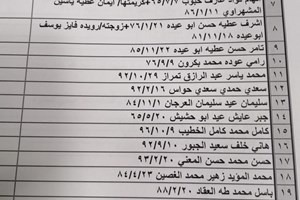 الهام فؤاد عارف حبوب ٦٥/٧/٧+كريمتها/ ايمان عطيه ياسين
٧
المشهراوي ٨٦/١/١١
اشرف عطيه حسن ابو عيده ٧٦/١/٢١+زوجته/رويده فايز يوسف
٨
ابو عيده ٨١/١١/١٨
٩ تامر حسن عطيه ابو عيده ٨٥/١١/٢٢
١٠ رامي عوده محمد بكرون ٧٦/٩/٩
١١ محمد ياسر عبد الرازق تمراز ٩٢/١٠/٢٩
١٢ سعدي حمدي سعدي حواس ٩٢/٢/١٦
١٣ سليمان عيد سليمان العرجان ٨٤/١١/١
١٤ جبر عايش عيد ابو حشيش ٦٥/٥/٢٠
١٥ كامل محمد كامل الخطيب ٩٦/١٠/٩
١٦ هاني خلف سعيد الجبور ٩٢/٩/١٠
١٧ حسن محمد حسن المغني ٩٣/٢/٢٠
١٨ محمد المؤيد زهير محمد الغصين ٨٤/٤/٢٣
١٩ باسل محمد طه العقاد ٨٨/٢/٢٠